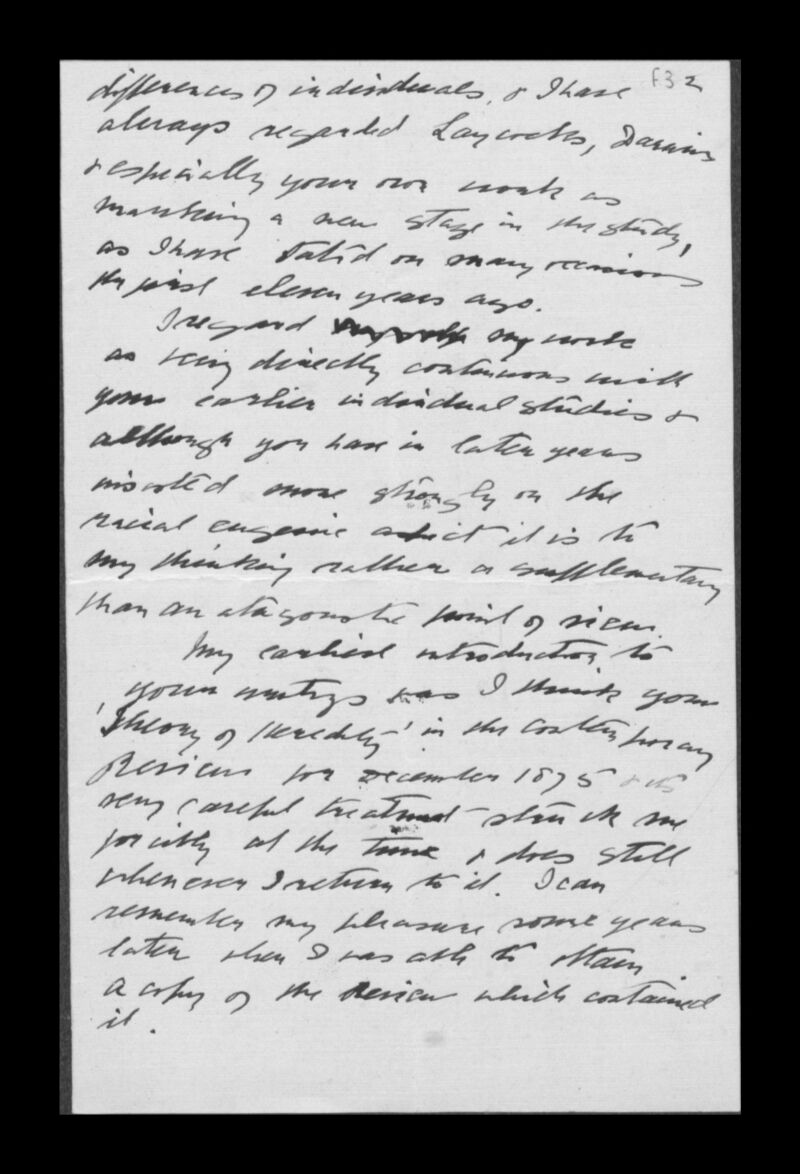 f3 2
differences of individuals, & I have
always regarded Laycocks, Darwins
& especially your own work as
marking a new stage in the study,
as I have on many occasions
the first eleven years ago.
I regard my work
as being directly continuous with
your earlier individual studies &
although you have in later years
insisted more strongly on the
racial eugenic it is to
my thinking rather a supplementary
than an atagonistic point of view.
My earliest introduction to
your writings was I think your
'Theory of Heredity' in the Contemporary
Review for December 1875 & its
very careful treatment struck me
forcibly at the time & does still
whenever I return to it. I can
remember my pleasure some years
later when I was able to obtain
a copy of the Review which contained
it.